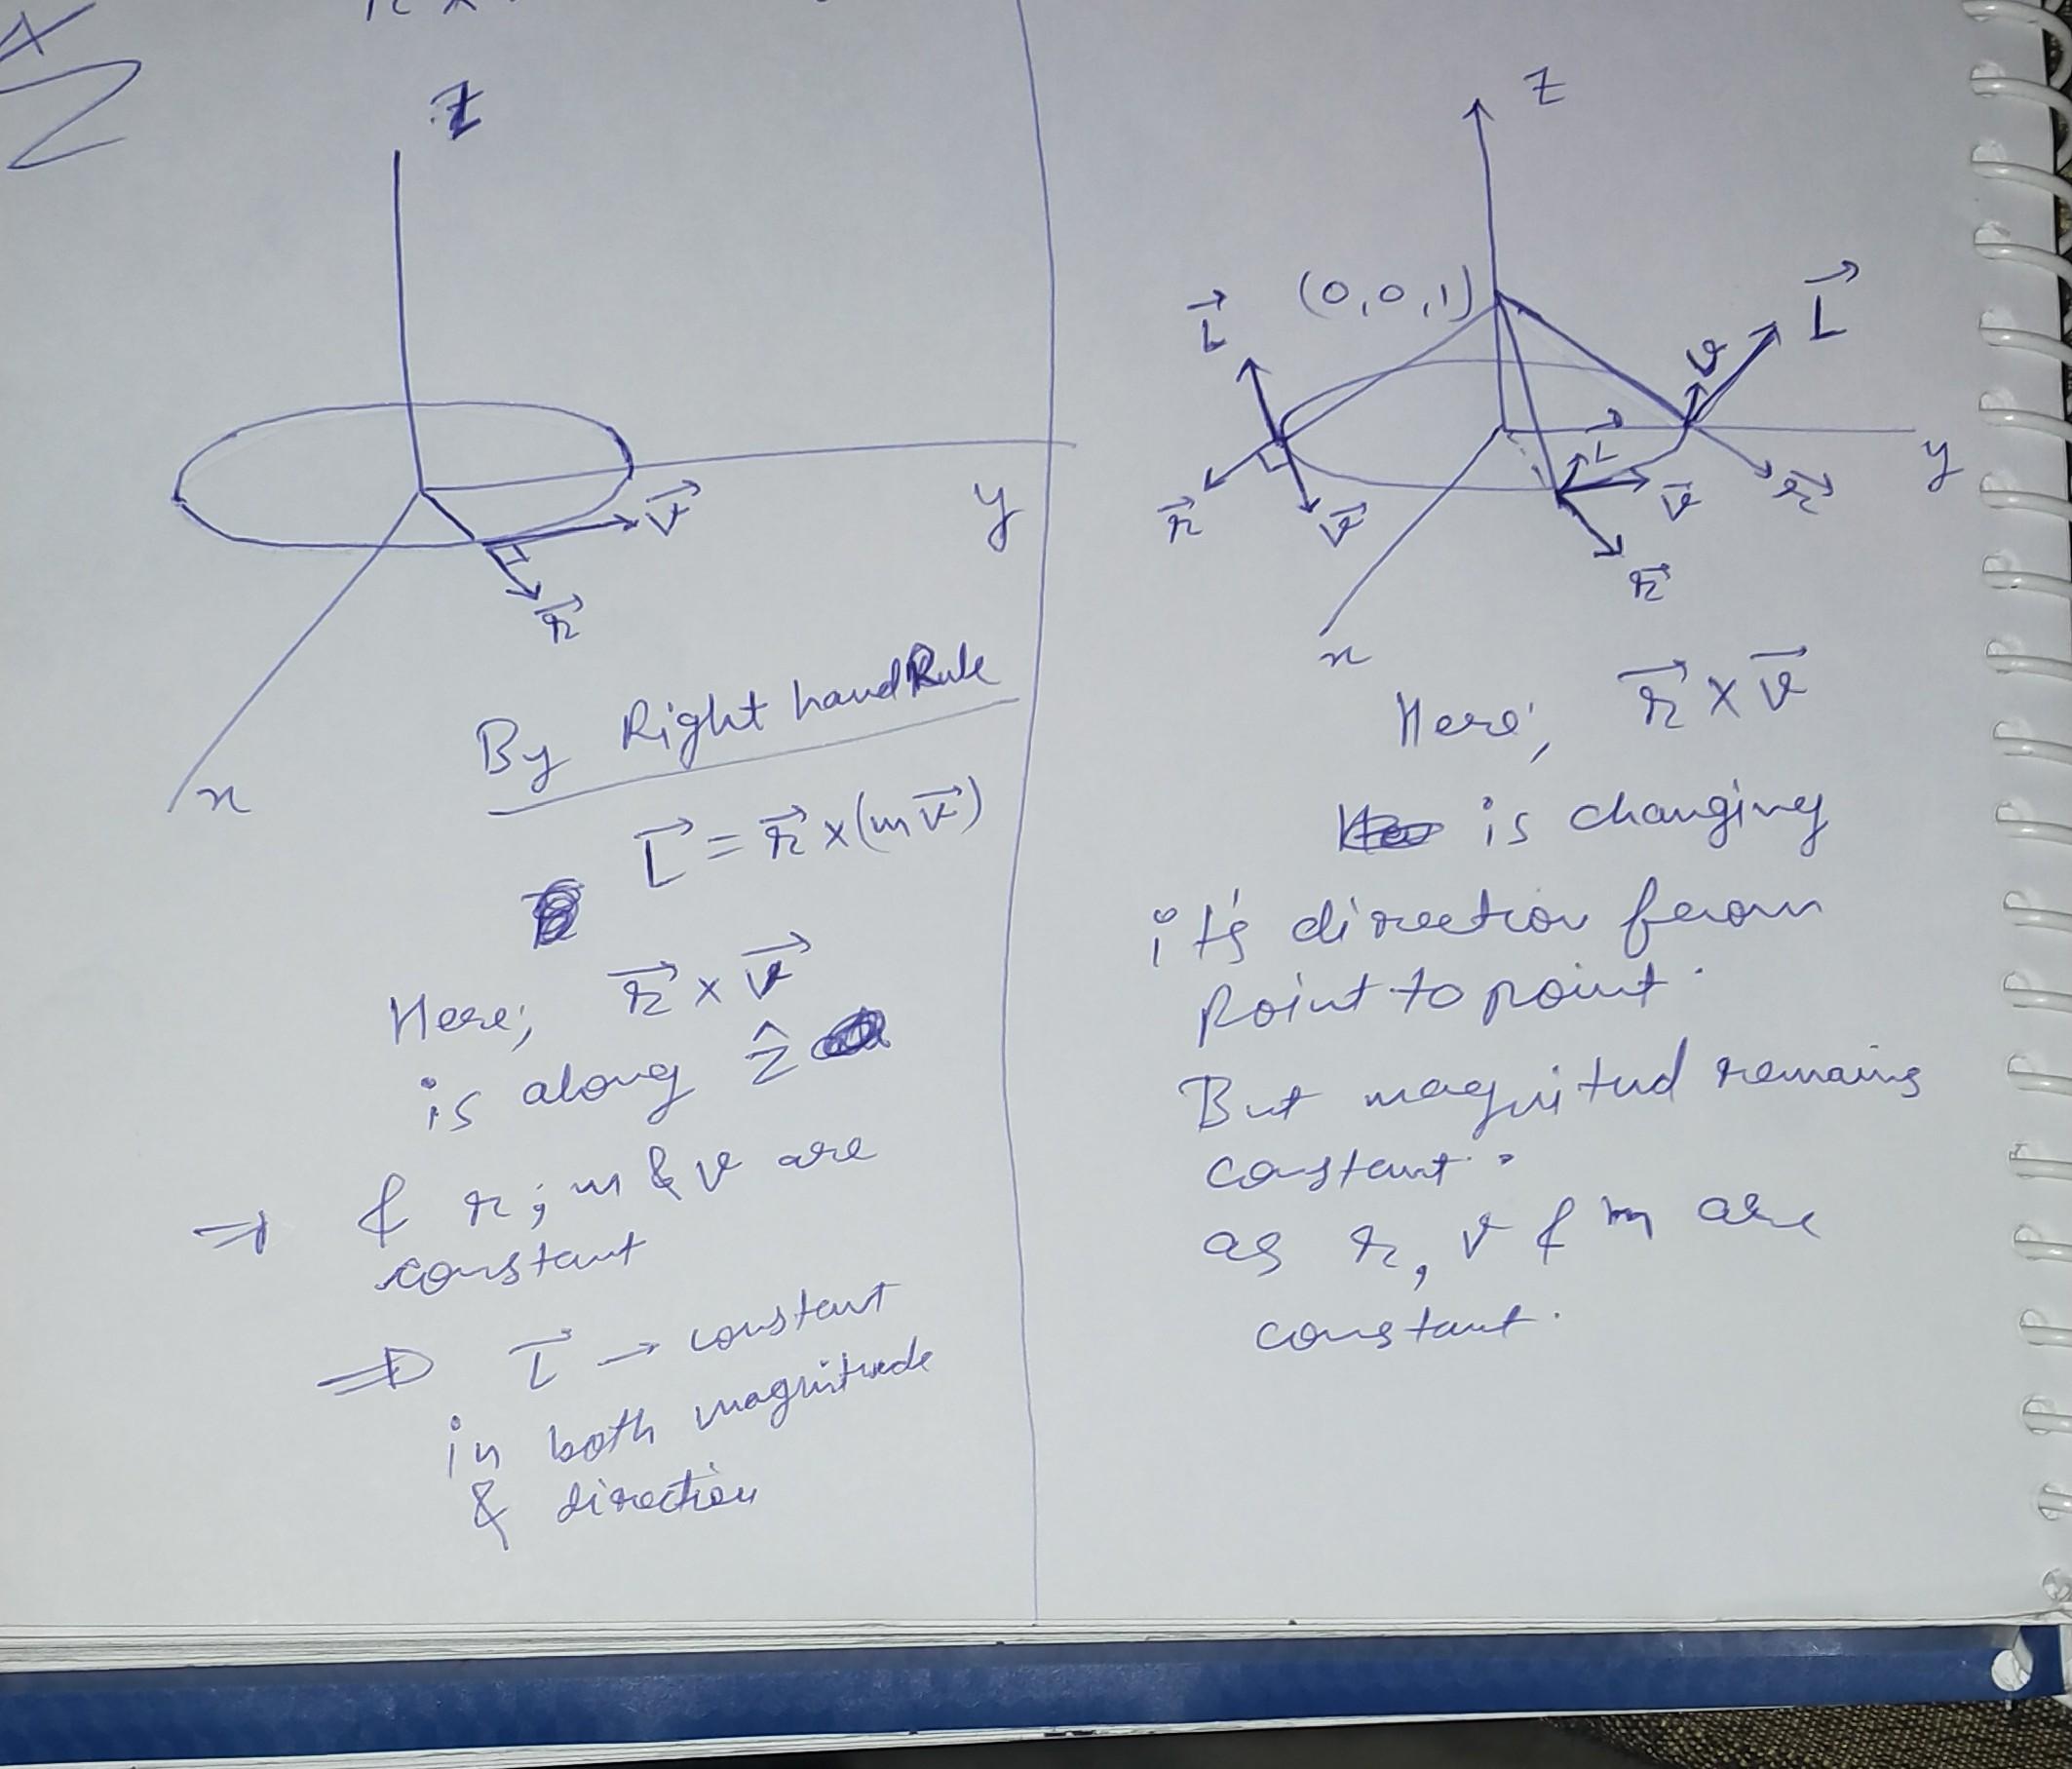 Z
y
x
v⃗
r⃗
By Right hand Rule
L⃗ = r⃗ × (m v⃗)
Here; r⃗ × v⃗
is along ẑ
⇒ & r; m & v are
constant
⇒ L⃗ → constant
in both magnitude
& direction
z
(0,0,1)
L⃗
L⃗
v
y
L⃗
v⃗
r⃗
r⃗
v⃗
r⃗
x
Here; r⃗ × v⃗
is changing
it's direction from
point to point.
But magnitud remains
constant.
as r, v & m are
constant.